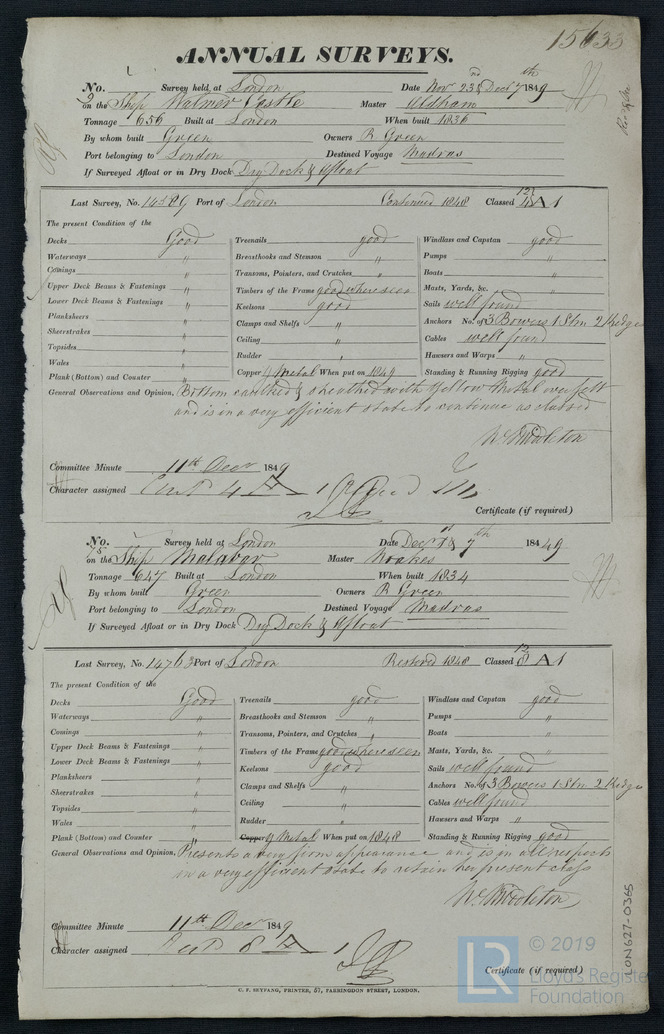 15633
ANNUAL SURVEYS.
No. Survey held at London Date Nov 23rd & Decr 7th 1849
on the Ship Walmer Castle Master Oldham
Tonnage 656 Built at London When built 1836
By whom built Green Owners R Green
Port belonging to London Destined Voyage Madras
If Surveyed Afloat or in Dry Dock Dry Dock & Afloat
Last Survey, No. 14589 Port of London Continued 1848 Classed 12 4 A 1
The present Condition of the
Decks Good Treenails good Windlass and Capstan good
Waterways " Breasthooks and Stemson " Pumps "
Comings " Transoms, Pointers, and Crutches " Boats "
Upper Deck Beams & Fastenings " Timbers of the Frame good where seen Masts, Yards, &c. "
Lower Deck Beams & Fastenings " Keelsons good Sails well found
Planksheers " Clamps and Shelfs " Anchors No. of 3 Bowers 1 Stm 2 Kedges
Sheerstrakes " Ceiling " Cables well found
Topsides " Rudder " Hawsers and Warps "
Wales " Copper Y Metal When put on 1849 Standing & Running Rigging good
Plank (Bottom) and Counter "
General Observations and Opinion, Bottom caulked & sheathed with Yellow Metal over felt
and is in a very efficient state to continue as classed
Wm Middleton
Committee Minute 11th Decr 1849
Character assigned Cont 4 A 1
Certificate (if required)
No. Survey held at London Date Decr 1st & 7th 1849
on the Ship Malabar Master Noakes
Tonnage 647 Built at London When built 1834
By whom built Green Owners R Green
Port belonging to London Destined Voyage Madras
If Surveyed Afloat or in Dry Dock Dry Dock & Afloat
Last Survey, No. 14763 Port of London Restored 1848 Classed 12 8 A 1
The present Condition of the
Decks Good Treenails good Windlass and Capstan good
Waterways " Breasthooks and Stemson " Pumps "
Comings " Transoms, Pointers, and Crutches " Boats "
Upper Deck Beams & Fastenings " Timbers of the Frame good where seen Masts, Yards, &c. "
Lower Deck Beams & Fastenings " Keelsons good Sails well found
Planksheers " Clamps and Shelfs " Anchors No. of 3 Bowers 1 Stm 2 Kedges
Sheerstrakes " Ceiling " Cables well found
Topsides " Rudder " Hawsers and Warps "
Wales " Copper Y Metal When put on 1848 Standing & Running Rigging good
Plank (Bottom) and Counter "
General Observations and Opinion, Presents a very firm appearance and is in all respects
in a very efficient state to retain her present class
Wm Middleton
Committee Minute 11th Decr 1849
Character assigned Cont 8 A 1
Certificate (if required)
C. F. SEYFANG, PRINTER, 57, FARRINGDON STREET, LONDON.
LON627-0365
LR © 2019
Lloyd's Register
Foundation